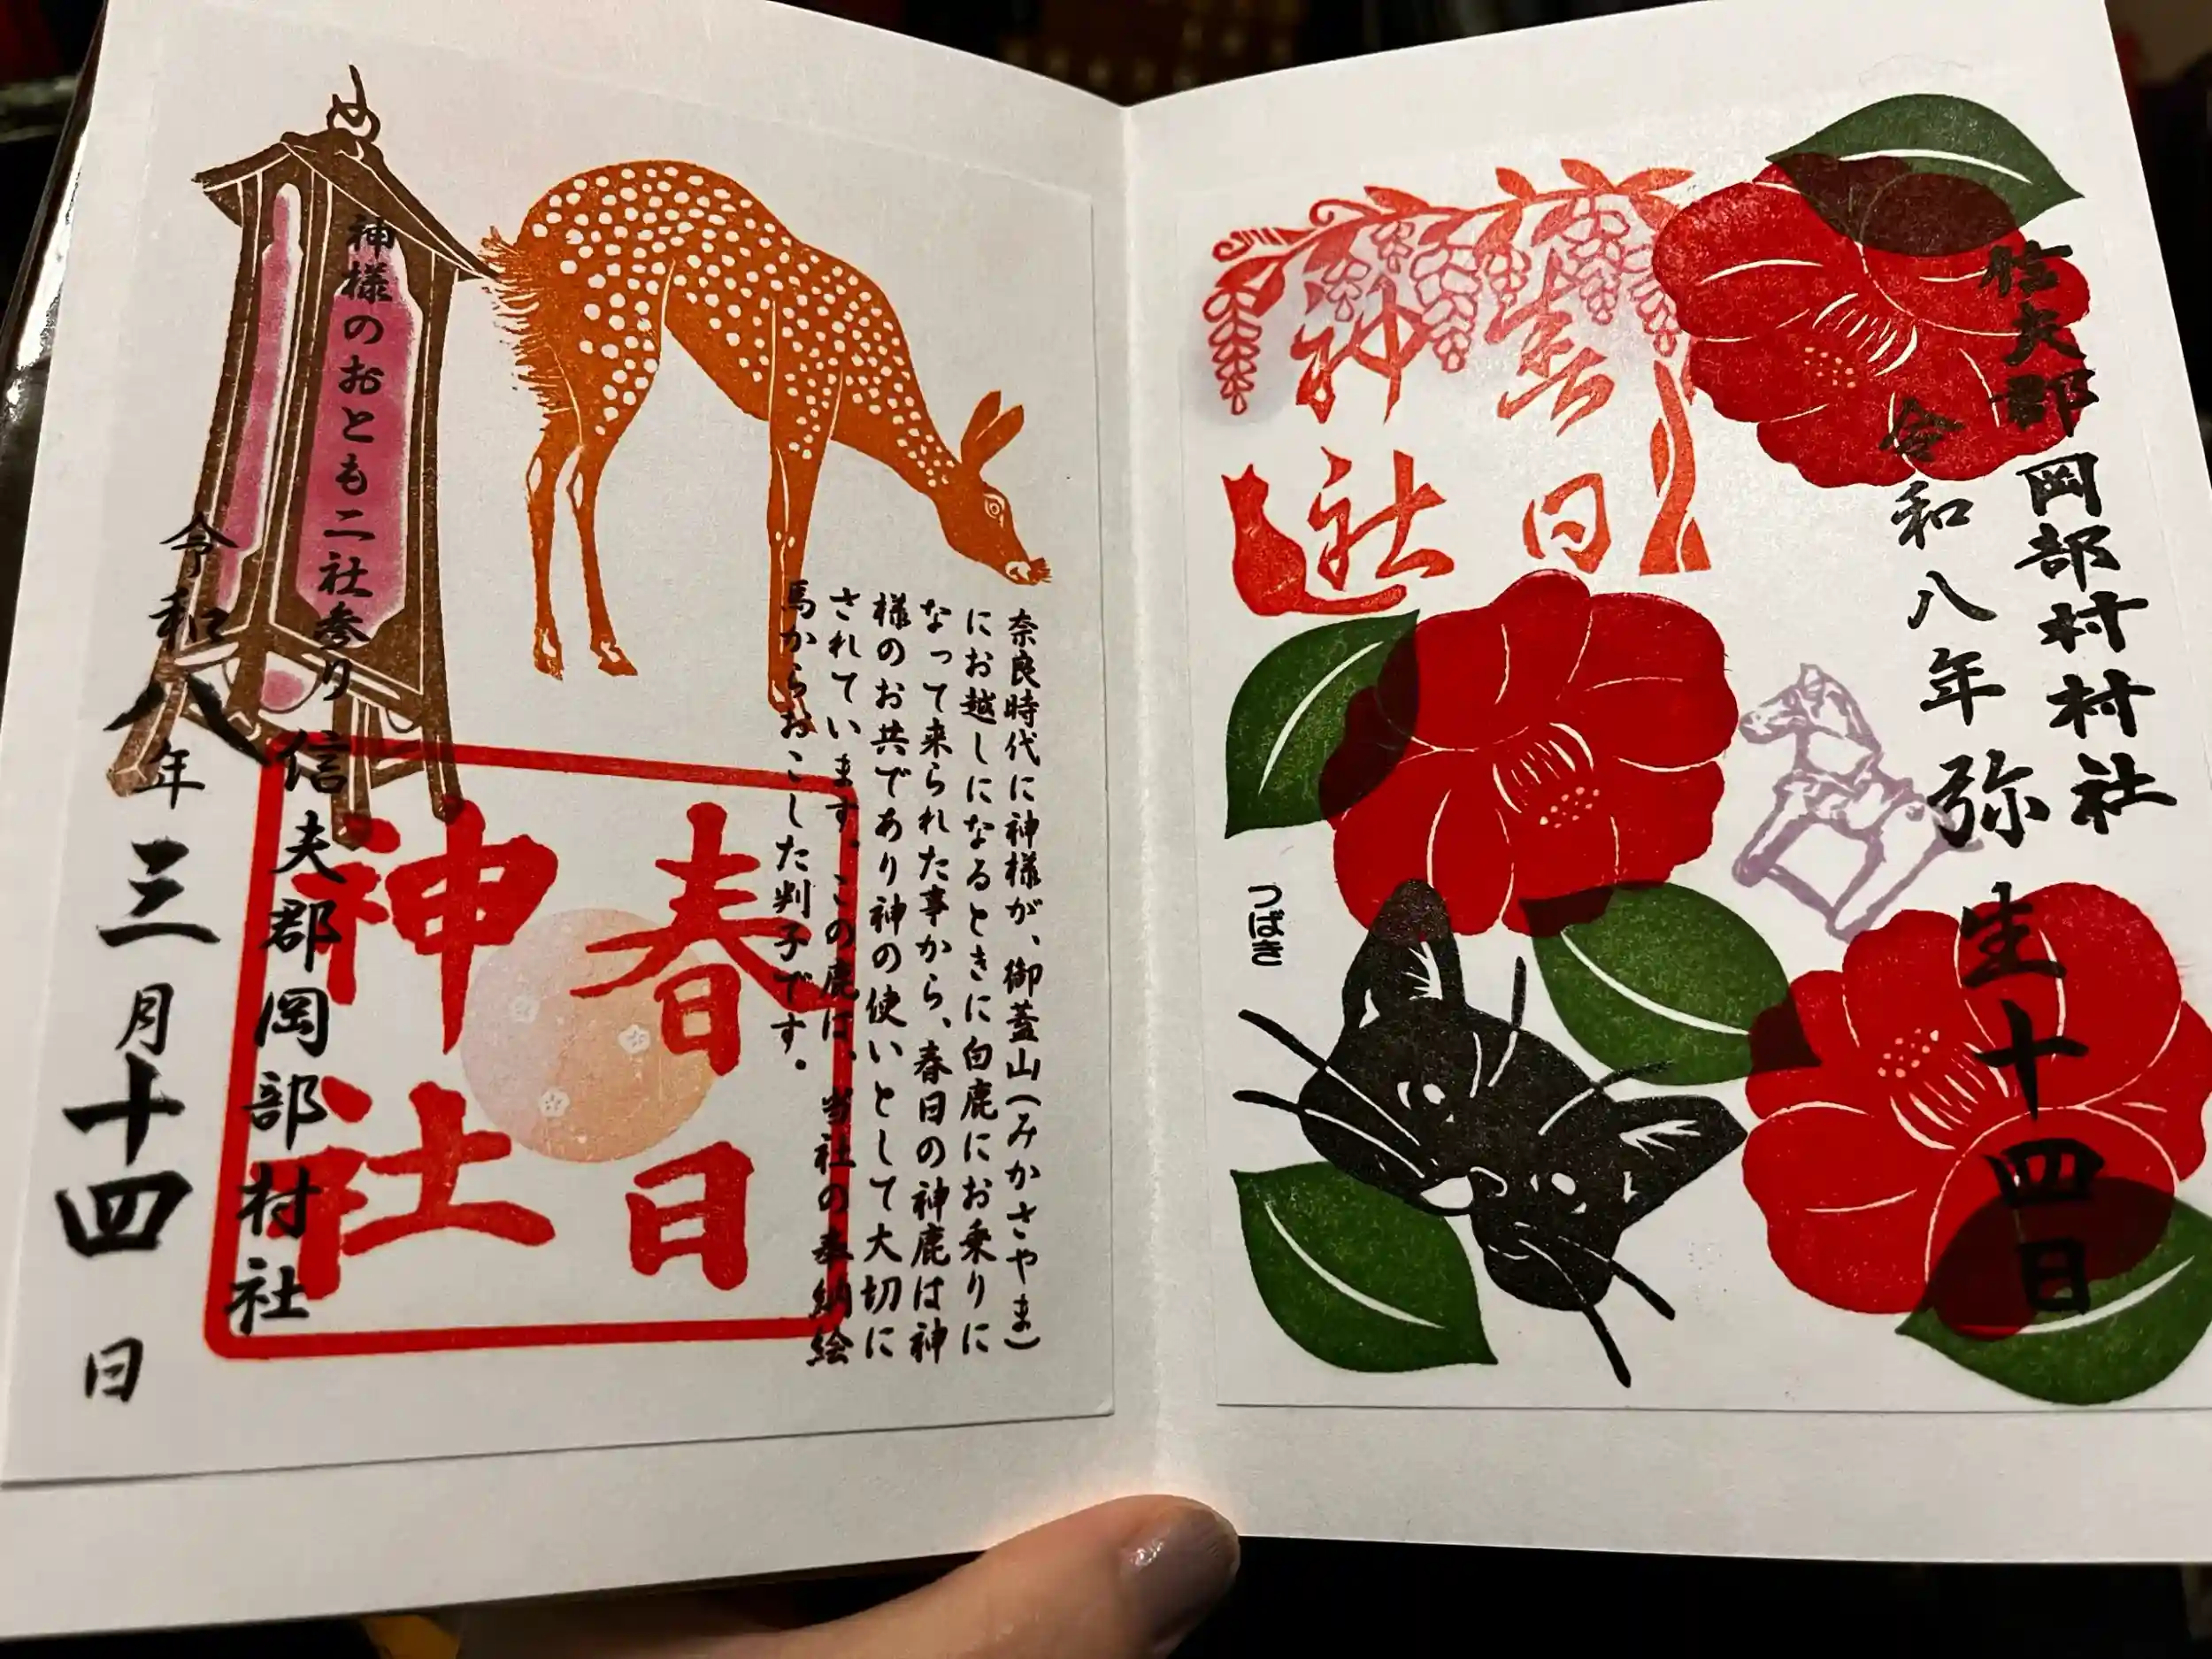 信夫郡岡部村村社
令和八年弥生十四日
春日
神社
つばき
奈良時代に神様が、御蓋山(みかさやま)
にお越しになるときに白鹿にお乗りに
なって来られた事から、春日の神鹿は神
様のお共であり神の使いとして大切に
されています。この鹿は、当社の奉納絵
馬からおこした判子です。
春日
神社
神様のおとも二社参り 信夫郡岡部村社
令和八年三月十四日